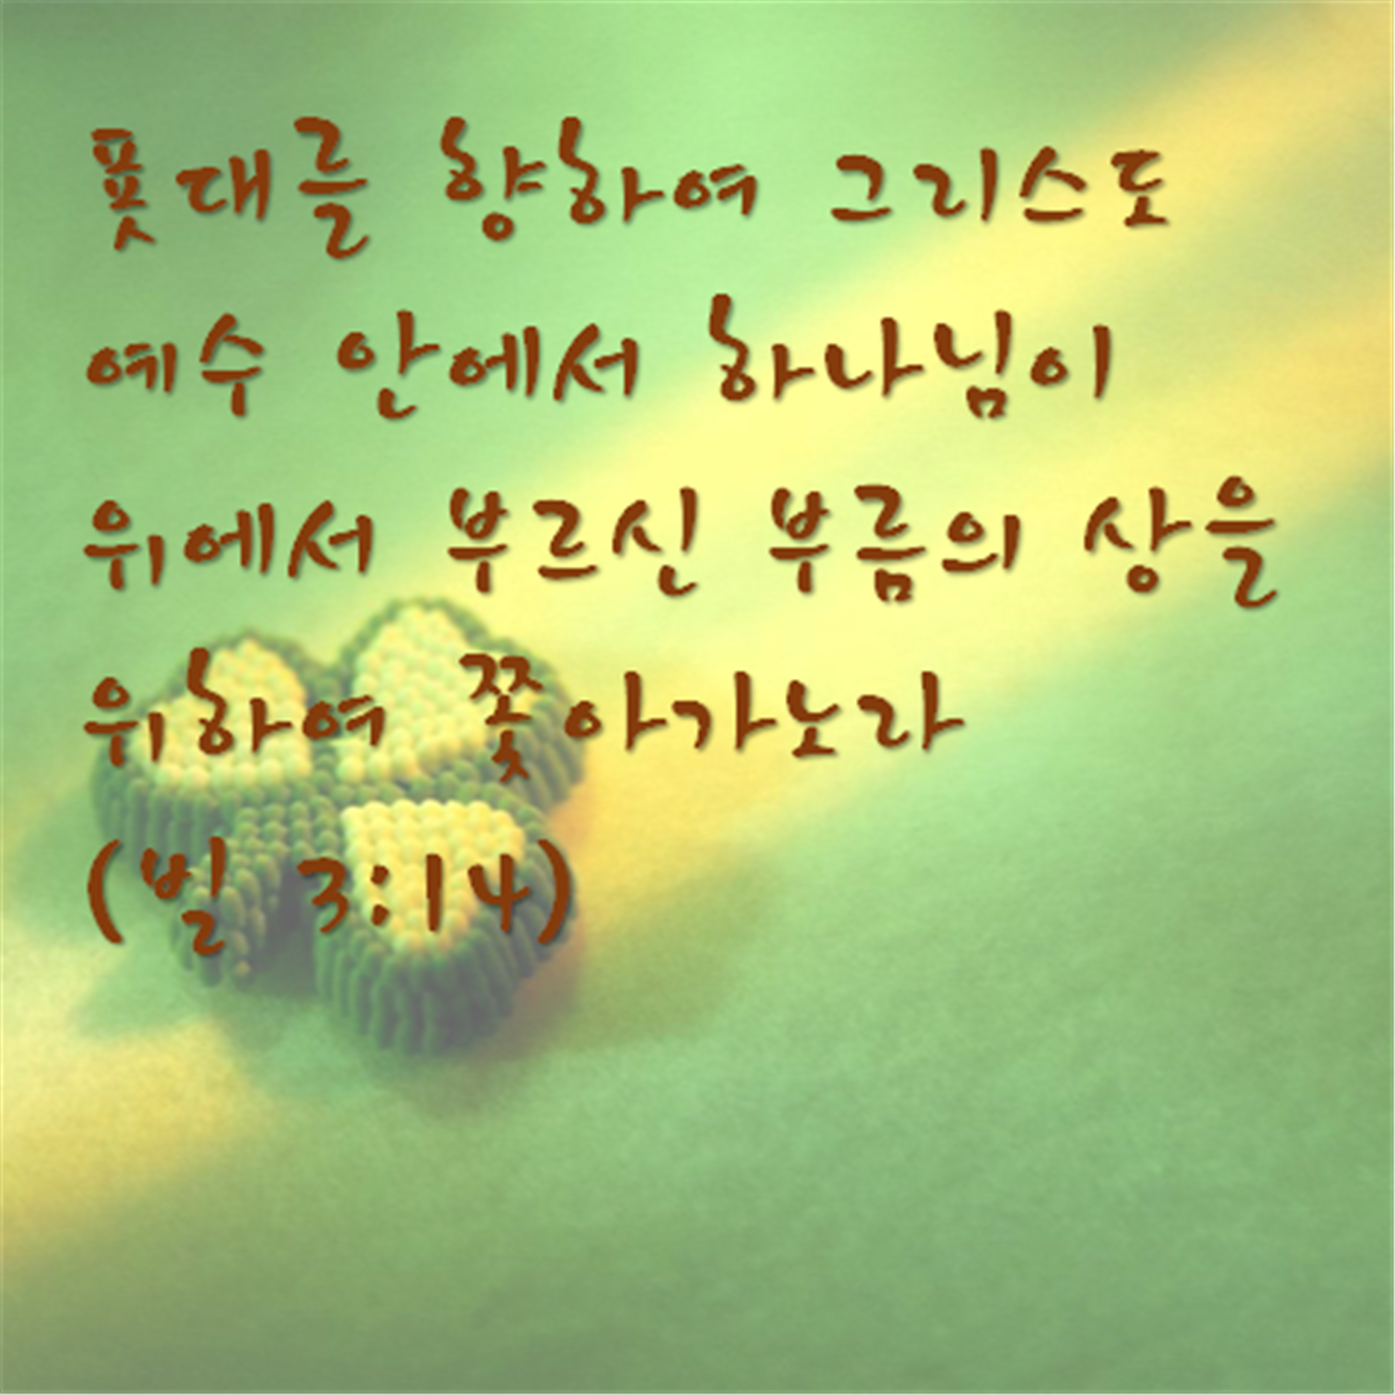 푯대를 향하여 그리스도
예수 안에서 하나님이
위에서 부르신 부름의 상을
위하여 쫓아가노라
(빌 3:14)